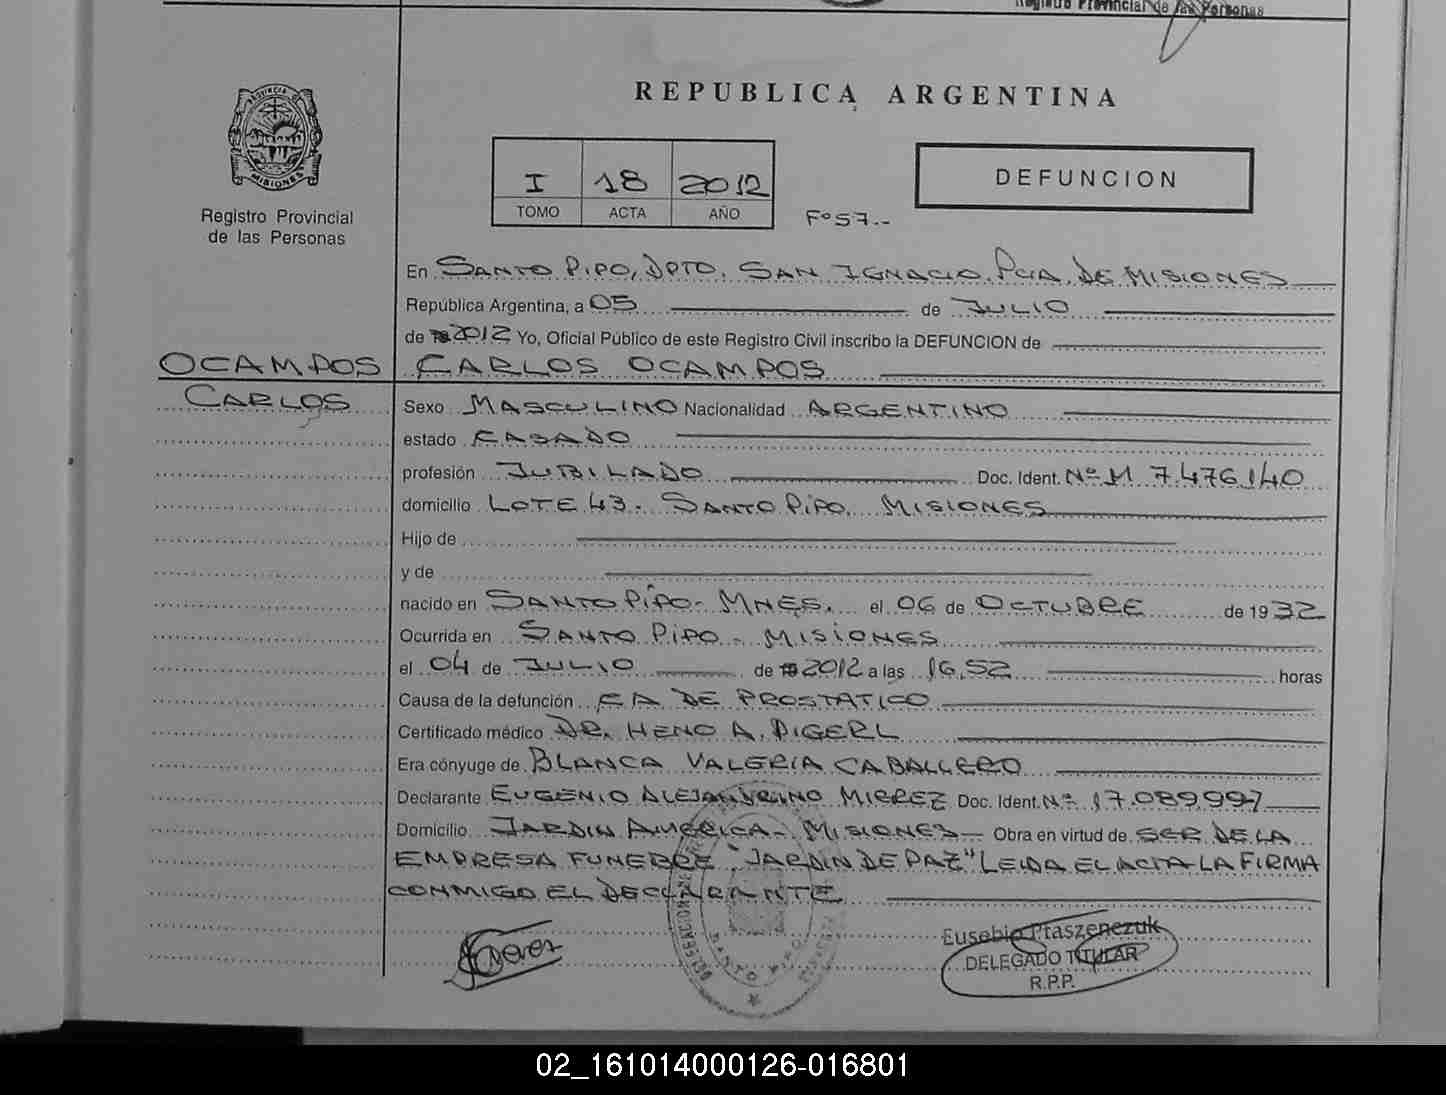 Registro Provincial de las Personas
REPUBLICA ARGENTINA
PROVINCIA DE
MISIONES
Registro Provincial
de las Personas
I 18 2012
TOMO ACTA AÑO
Fº 57.-
DEFUNCION
En SANTO PIPO, DPTO. SAN IGNACIO, PCIA. DE MISIONES
República Argentina, a 05 de JULIO
de 2012 Yo, Oficial Público de este Registro Civil inscribo la DEFUNCION de
OCAMPOS CARLOS OCAMPOS
CARLOS
Sexo MASCULINO Nacionalidad ARGENTINO
estado CASADO
profesión JUBILADO Doc. Ident. Nº M 7.476.140
domicilio LOTE 43. SANTO PIPO. MISIONES
Hijo de
y de
nacido en SANTO PIPO- MNES. el 06 de OCTUBRE de 1932
Ocurrida en SANTO PIPO - MISIONES
el 04 de JULIO de 2012 a las 16,52 horas
Causa de la defunción CA DE PROSTATICO
Certificado médico DR. HENO A. DIGERL
Era cónyuge de BLANCA VALERIA CABALLERO
Declarante EUGENIO ALEJANDRINO MIEREZ Doc. Ident. Nº 17.089997
Domicilio JARDIN AMERICA - MISIONES - Obra en virtud de SER DE LA
EMPRESA FUNEBRE "JARDIN DE PAZ" LEIDA EL ACTA LA FIRMA
CONMIGO EL DECLARANTE
Eusebio Ptaszenczuk
DELEGADO TITULAR
R.P.P.
DELEGACION DE
SANTO PIPO
02_161014000126-016801